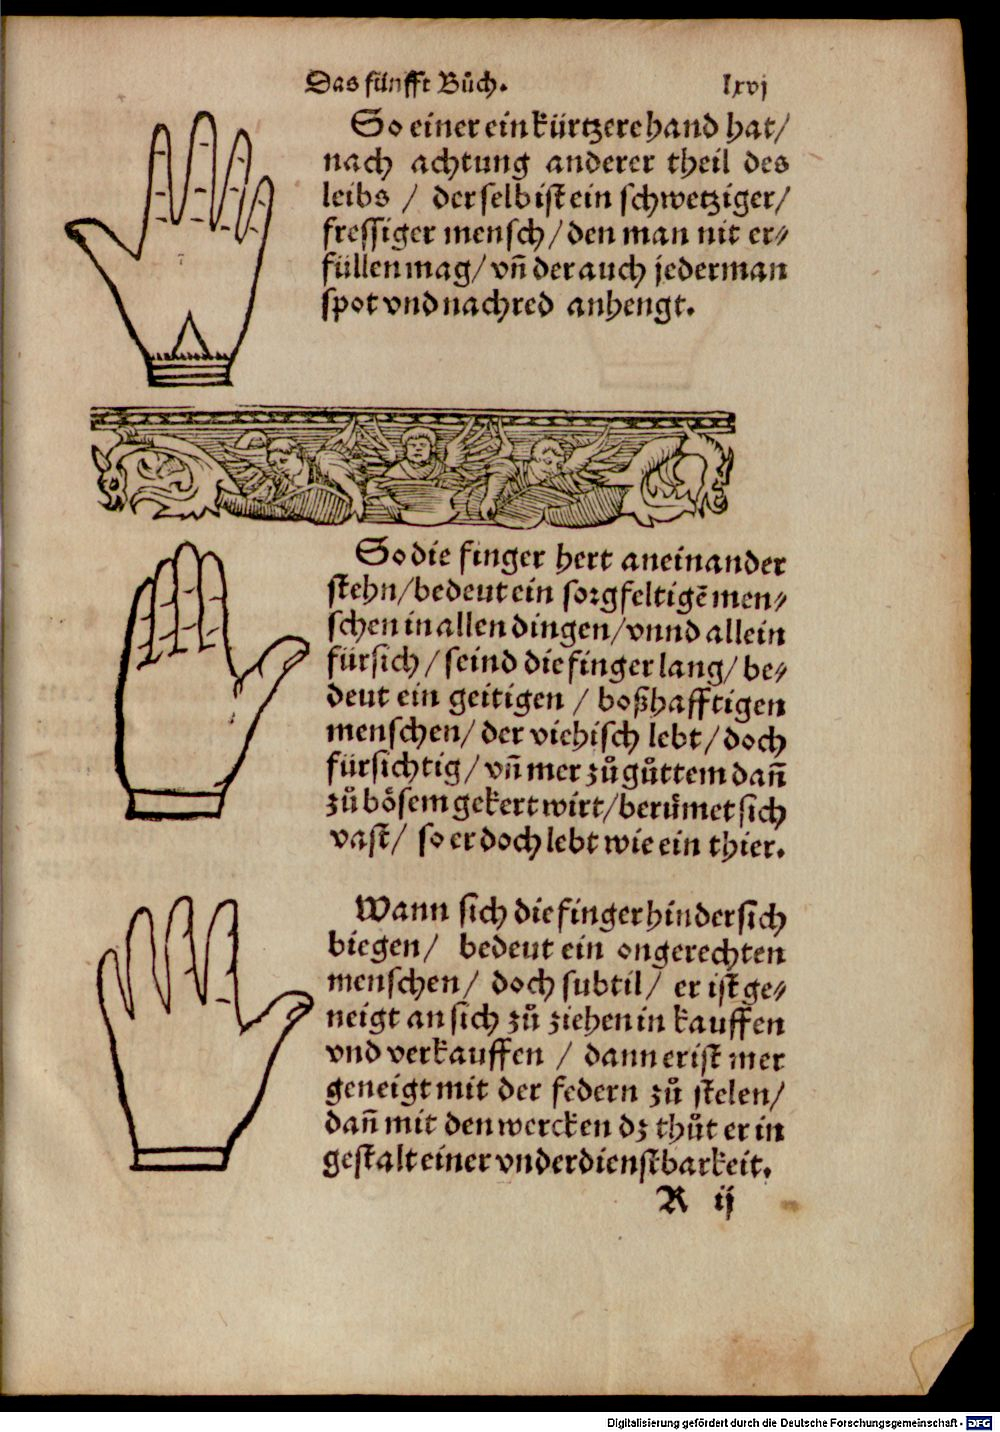 Das fünfft Bůch. lxvj
So einer ein kürtzere hand hat/
nach achtung anderer theil des
leibs / derselb ist ein schwetziger/
fressiger mensch/ den man nit er⸗
füllen mag/ vñ der auch jederman
spot vnd nachred anhengt.
So die finger hert aneinander
stehn/ bedeut ein sorgfeltigẽ men⸗
schen in allen dingen/ vnnd allein
fürsich/ seind die finger lang/ be⸗
deut ein geitigen / boßhafftigen
menschen/ der viehisch lebt/ doch
fürsichtig/ vñ mer zů gůttem dañ
zů bösem gekert wirt/ berůmet sich
vast/ so er doch lebt wie ein thier.
Wann sich die finger hindersich
biegen/ bedeut ein ongerechten
menschen/ doch subtil/ er ist ge⸗
neigt an sich zů ziehen in kauffen
vnd verkauffen / dann er ist mer
geneigt mit der federn zů stelen/
dañ mit den wercken dz thůt er in
gestalt einer vnderdienstbarkeit.
R ij
Digitalisierung gefördert durch die Deutsche Forschungsgemeinschaft - DFG